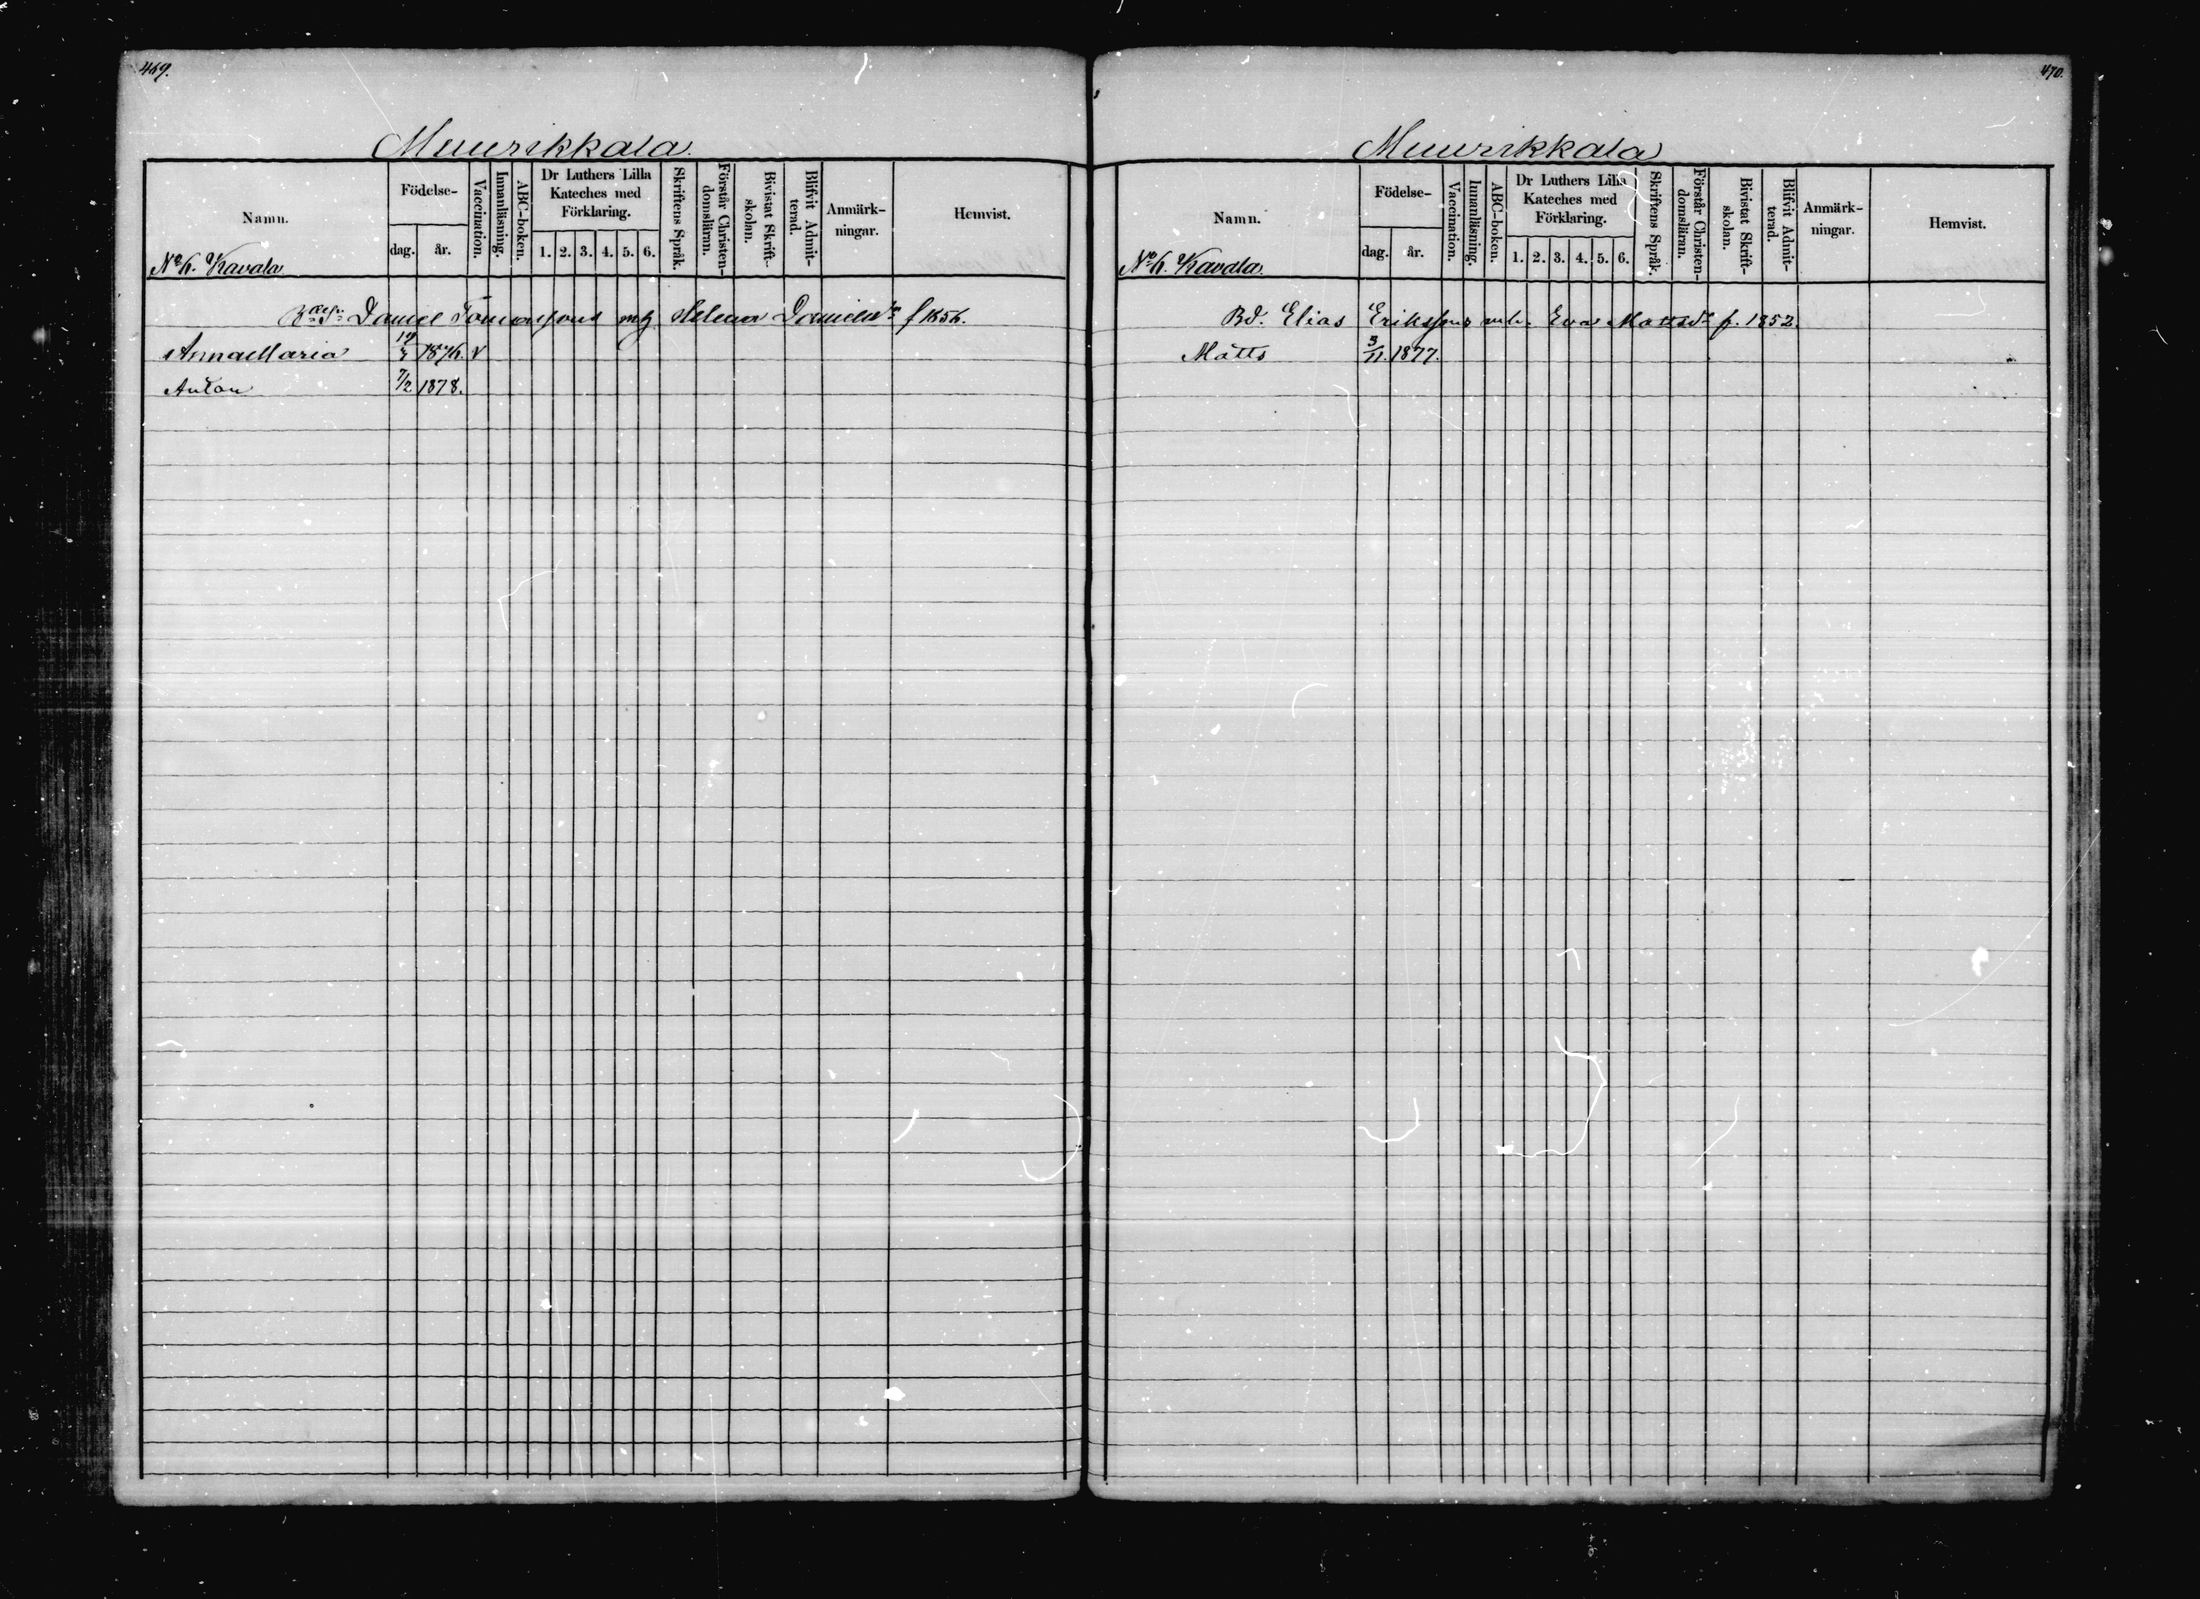 469.
Muurikkala.
Namn.
Födelse-
dag.
år.
Vaccination.
Innanläsning.
ABC-boken.
Dr Luthers Lilla
Kateches med
Förklaring.
1. 2. 3. 4. 5. 6.
Skriftens Språk.
Förstår Christen-
domsläran.
Bivistat Skrift-
skolan.
Blifvit Admit-
terad.
Anmärk-
ningar.
Hemvist.
Kavala
Daniel Tomassons Helena
Anna Maria 1876. v
Anton 7/2 1878.
470.
Muurikkala
Namn.
Födelse-
dag.
år.
Vaccination.
Innanläsning.
ABC-boken.
Dr Luthers Lilla
Kateches med
Förklaring.
1. 2. 3. 4. 5. 6.
Skriftens Språk.
Förstår Christen-
domsläran.
Bivistat Skrift-
skolan.
Blifvit Admit-
terad.
Anmärk-
ningar.
Hemvist.
Kavala.
Bd. Elias Erikssons Eva Mattsdr f. 1852.
Matts 3/11. 1877.